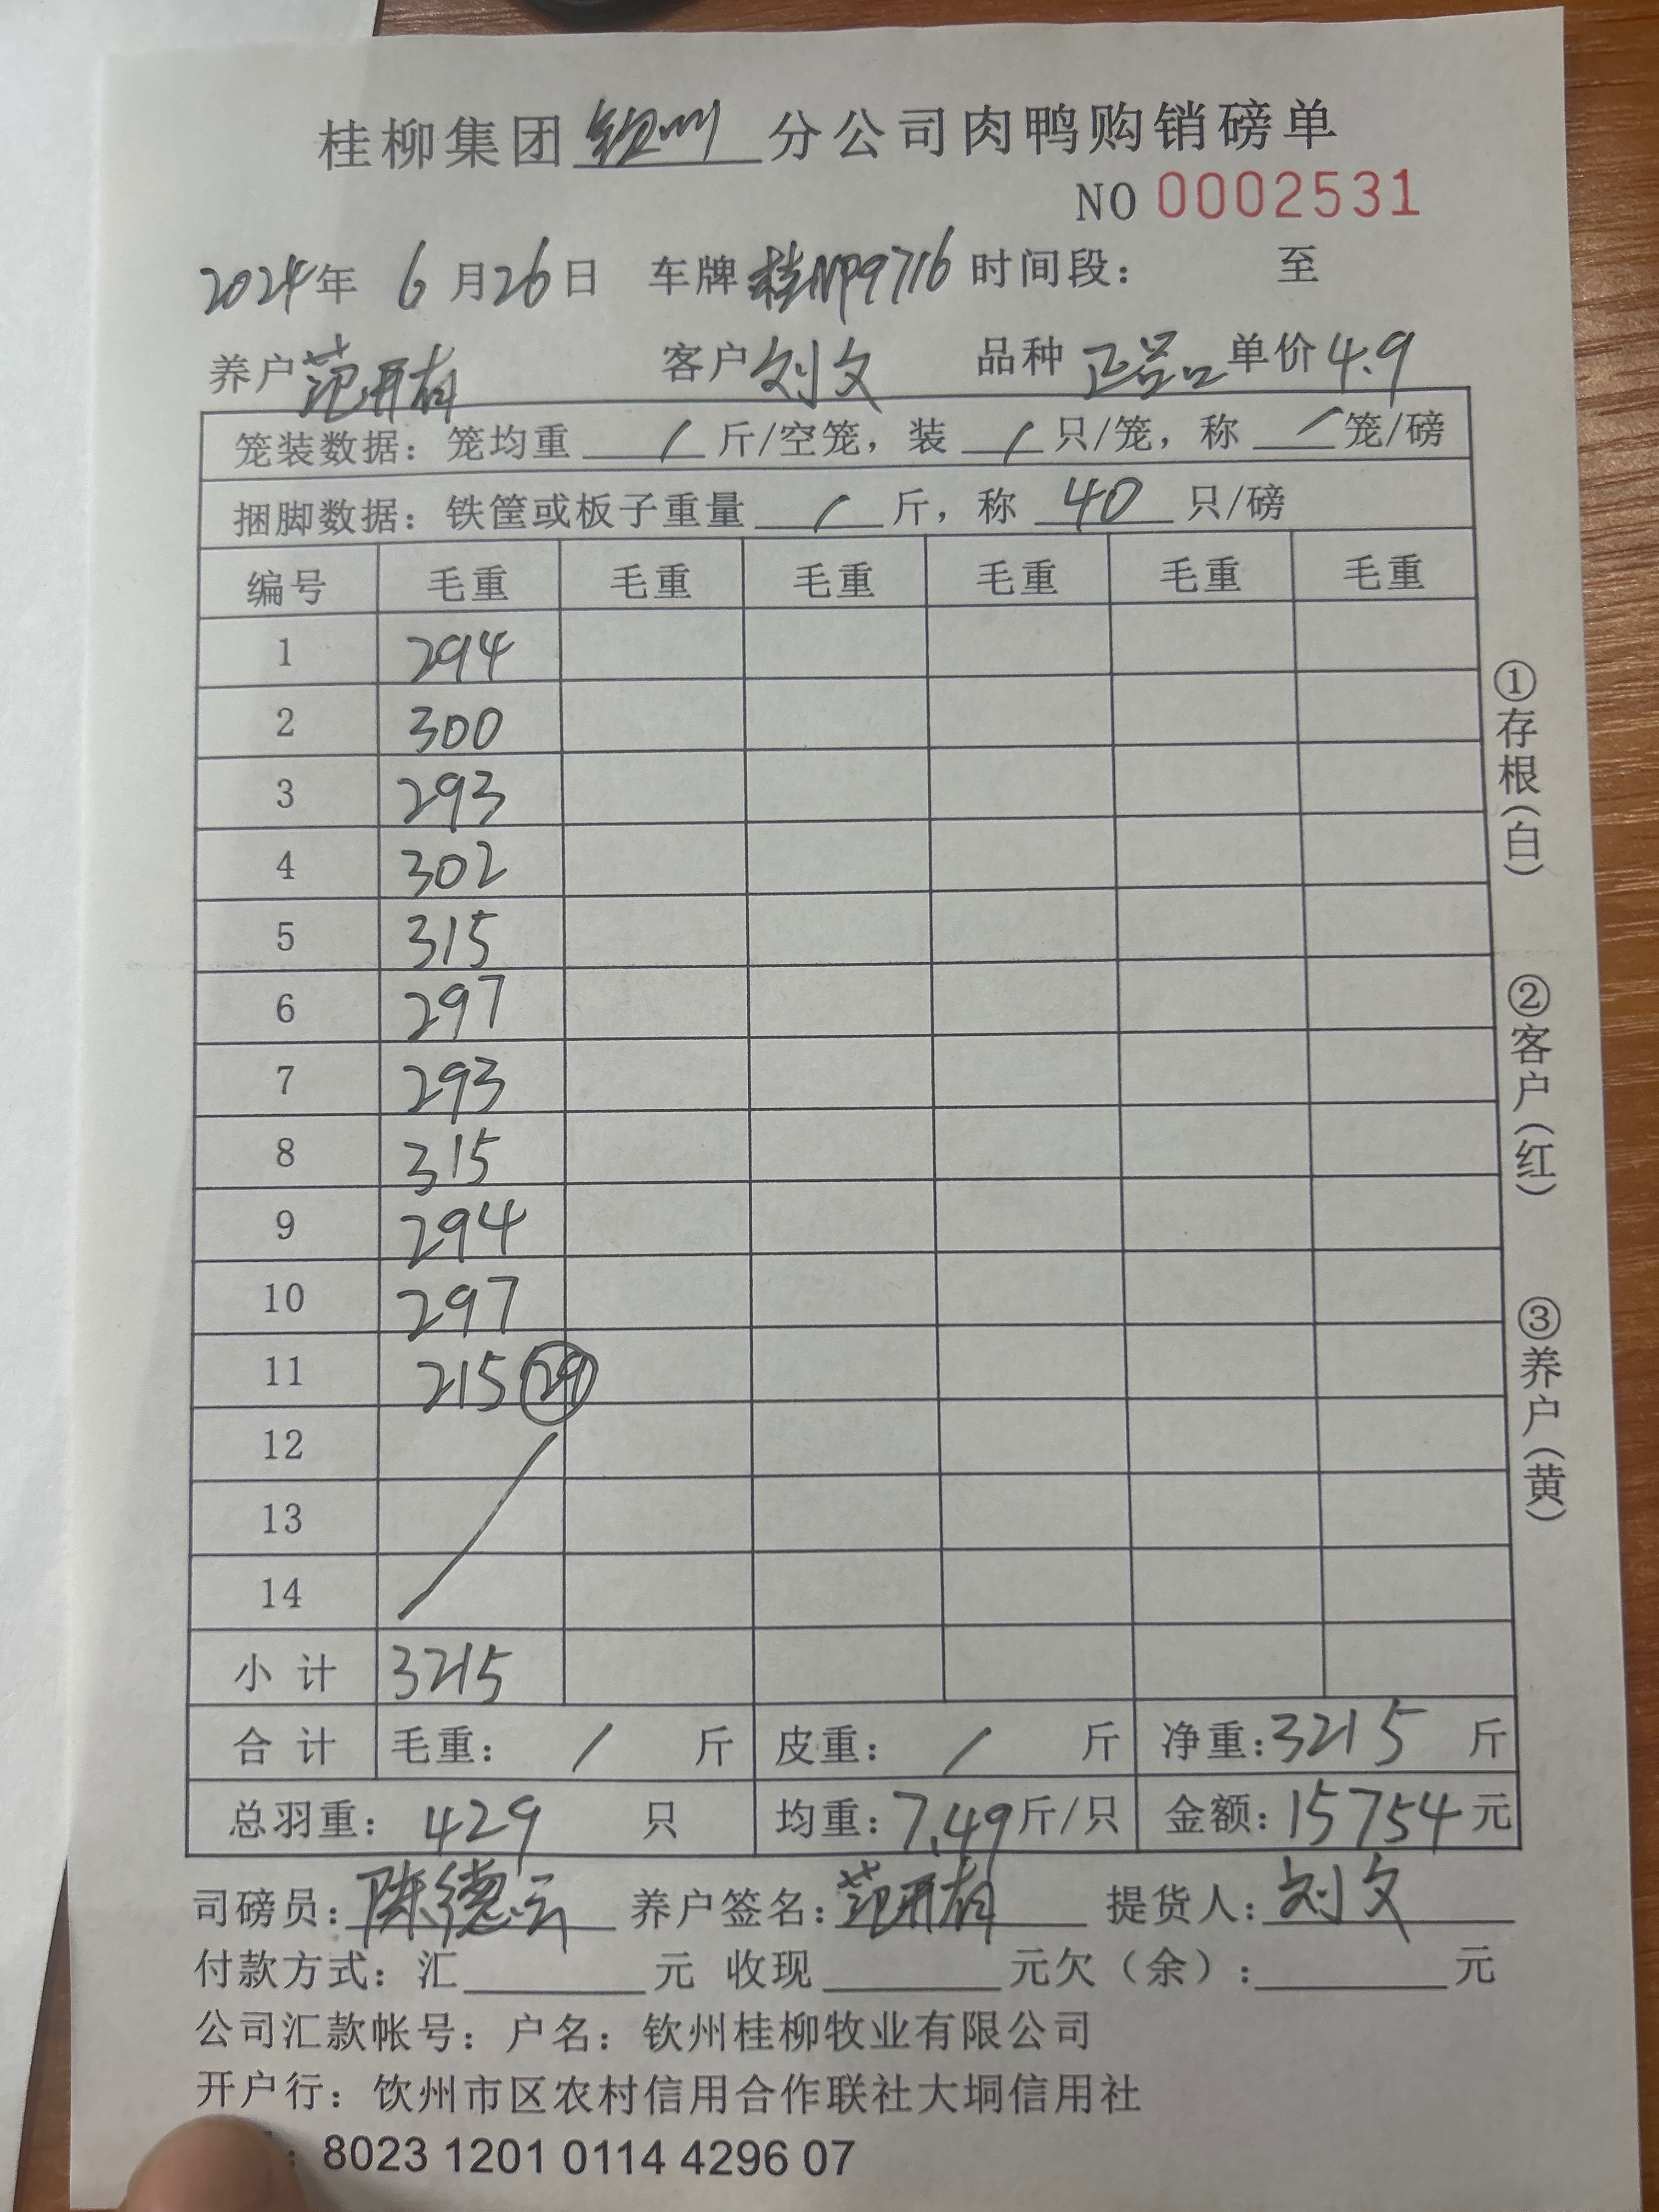 桂柳集团 钦州 分公司肉鸭购销磅单
NO 0002531
2024年 6月26日 车牌 桂NP9716 时间段： 至
养户 范开有 客户 刘文 品种 正品 单价 4.9
笼装数据：笼均重 / 斤/空笼，装 / 只/笼，称 / 笼/磅
捆脚数据：铁筐或板子重量 / 斤，称 40 只/磅
编号 毛重 毛重 毛重 毛重 毛重 毛重
1 294
2 300
3 293
4 302
5 315
6 297
7 293
8 315
9 294
10 297
11 215 29
12
13
14
小计 3215
合计 毛重： / 斤 皮重： / 斤 净重：3215 斤
总羽重： 429 只 均重：7.49斤/只 金额：15754元
司磅员：陈德云 养户签名：范开有 提货人：刘文
付款方式：汇 元 收现 元欠（余）： 元
公司汇款帐号：户名：钦州桂柳牧业有限公司
开户行：饮州市区农村信用合作联社大垌信用社
：8023 1201 0114 4296 07
①存根（白）
②客户（红）
③养户（黄）